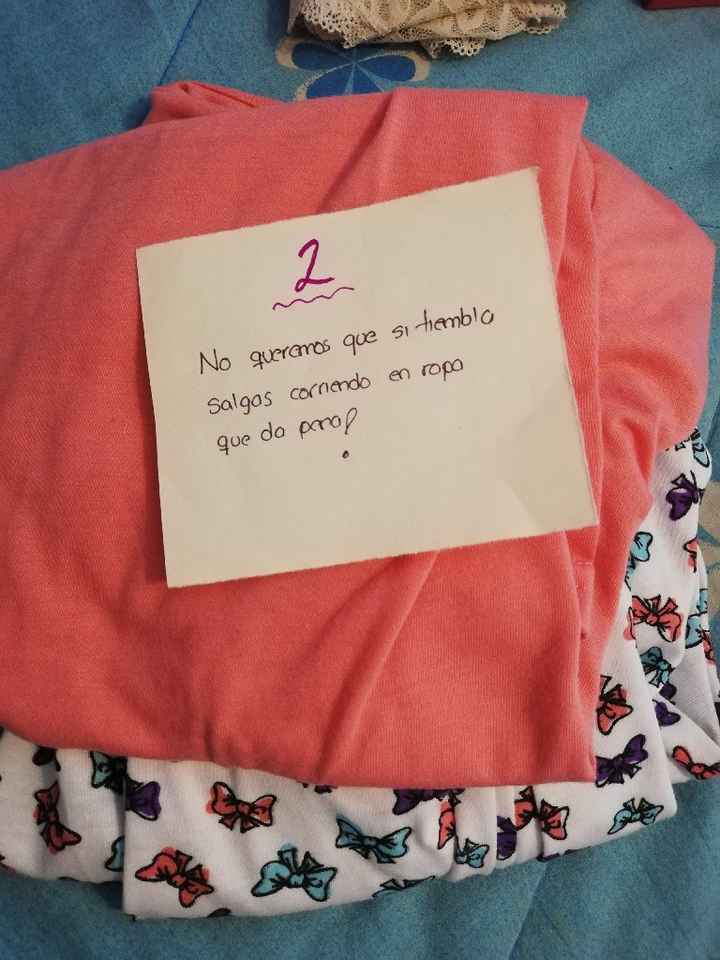 2
No queremos que si tiembla
salgas corriendo en ropa
que da pena!